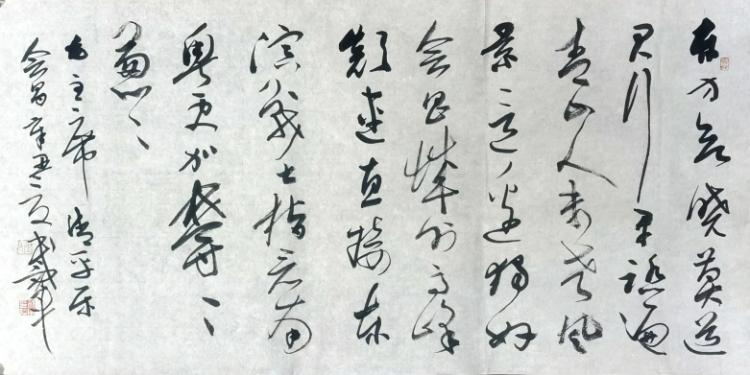 东方欲晓莫道
君行早踏遍
青山人未老风
景这边独好
会昌城外高峰
颠连直接东
溟战士指看南
粤更加郁々
葱々
毛主席 清平乐
会昌辛丑夏